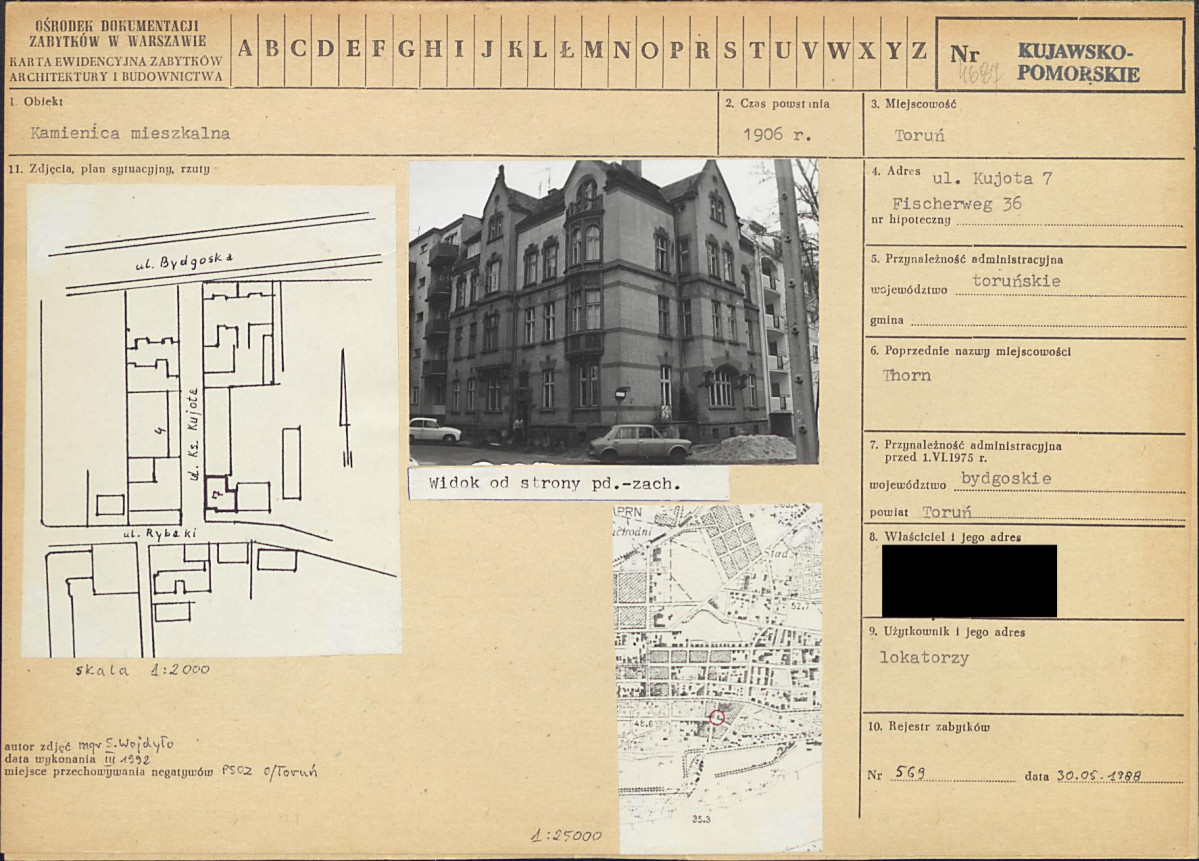 OŚRODEK DOKUMENTACJI
ZABYTKÓW W WARSZAWIE
KARTA EWIDENCYJNA ZABYTKÓW
ARCHITEKTURY I BUDOWNICTWA
A B C D E F G H I J K L Ł M N O P R S T U V W X Y Z
Nr
KUJAWSKO-
POMORSKIE
1. Obiekt
Kamienica mieszkalna
2. Czas powstania
1906 r.
3. Miejscowość
Toruń
11. Zdjęcia, plan sytuacyjny, rzuty
ul. Bydgoska
ul. Ks. Kujota
4
7
ul. Rybaki
skala 1:2000
Widok od strony pd.-zach.
Stad.
52.7
35.3
1:25000
autor zdjęć mgr S. Wojdyło
data wykonania III 1992
miejsce przechowywania negatywów PSOZ O/Toruń
4. Adres ul. Kujota 7
Fischerweg 36
nr hipoteczny
5. Przynależność administracyjna
województwo toruńskie
gmina
6. Poprzednie nazwy miejscowości
Thorn
7. Przynależność administracyjna
przed 1.VI.1975 r.
województwo bydgoskie
powiat Toruń
8. Właściciel i jego adres
9. Użytkownik i jego adres
lokatorzy
10. Rejestr zabytków
Nr 569 data 30.05.1988